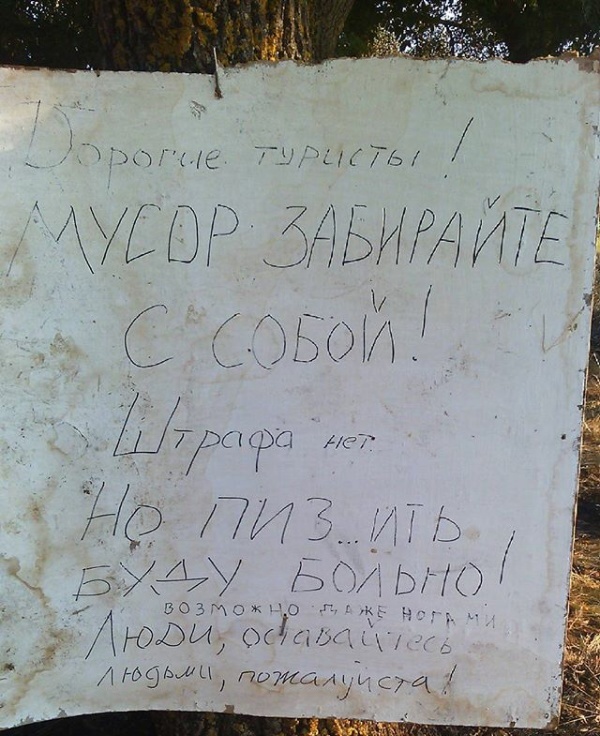 Дорогие туристы!
МУСОР ЗАБИРАЙТЕ
С СОБОЙ!
Штрафа нет.
НО ПИЗ...ИТЬ
БУДУ БОЛЬНО!
ВОЗМОЖНО ДАЖЕ НОГАМИ
ЛЮДИ, оставайтесь
людьми, пожалуйста!